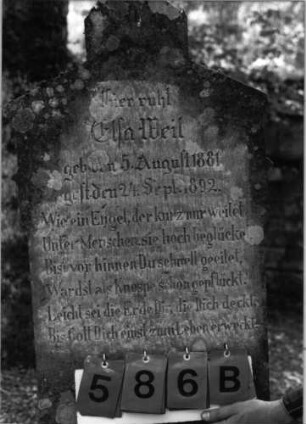 Hier ruht
Elsa Weil
geboren 5. August 1881
gest. den 24. Sept. 1892.
Wie ein Engel, der kurz nur weilet
Unter Menschen, sie hoch beglückt
Bist von hinnen Du schnell geeilet,
Wardst als Knospe schon gepflückt.
Leicht sei die Erde Dir, die Dich deckt
Bis Gott Dich einst zum Leben erweckt.
586B